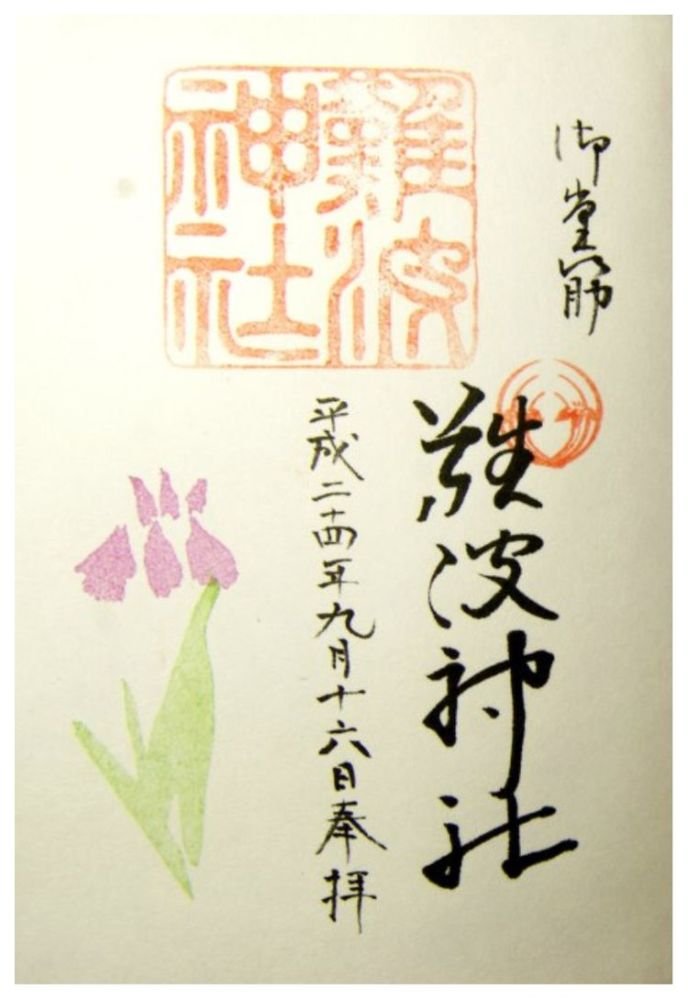 御堂筋
難波神社
平成二十四年九月十六日奉拝
難波
神社